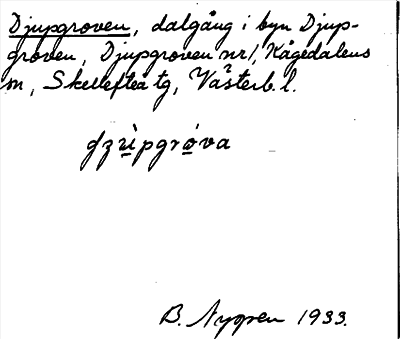 Djupgroven, dalgång i byn Djup-
groven, Djupgroven nr 1, Kågedalens
m, Skellefteå tg, Västerb. l.
gzu̱̇̀pgrǿ̱va
B. Nygren 1933.